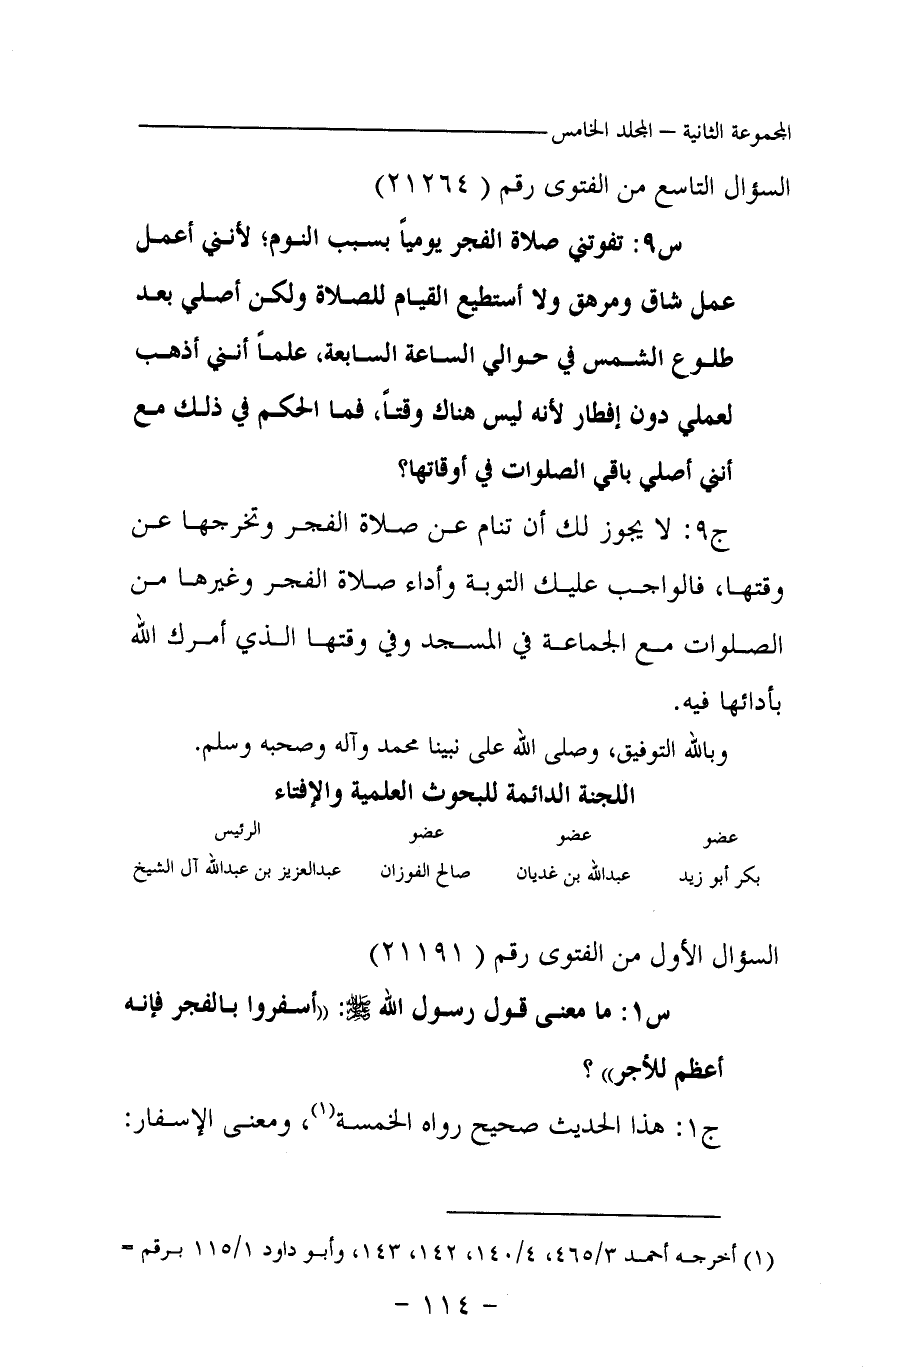 المجموعة الثانية – المجلد الخامس
السؤال التاسع من الفتوى رقم ( ٢١٢٦٤)
س٩: تفوتني صلاة الفجر يومياً بسبب النوم؛ لأنني أعمل
عمل شاق ومرهق ولا أستطيع القيام للصلاة ولكن أصلي بعد
طلوع الشمس في حوالي الساعة السابعة، علماً أنني أذهب
لعملي دون إفطار لأنه ليس هناك وقتاً، فما الحكم في ذلك مع
أنني أصلي باقي الصلوات في أوقاتها؟
ج٩: لا يجوز لك أن تنام عن صلاة الفجر وتخرجها عن
وقتها، فالواجب عليك التوبة وأداء صلاة الفجر وغيرها من
الصلوات مع الجماعة في المسجد وفي وقتها الذي أمرك الله
بأدائها فيه.
وبالله التوفيق، وصلى الله على نبينا محمد وآله وصحبه وسلم.
اللجنة الدائمة للبحوث العلمية والإفتاء
عضو عضو عضو الرئيس
بكر أبو زيد عبدالله بن غديان صالح الفوزان عبدالعزيز بن عبدالله آل الشيخ
السؤال الأول من الفتوى رقم ( ٢١١٩١)
س١: ما معنى قول رسول الله ﷺ: ((أسفروا بالفجر فإنه
أعظم للأجر)) ؟
ج١: هذا الحديث صحيح رواه الخمسة(١)، ومعنى الإسفار:
(١) أخرجه أحمد ٤٦٥/٣، ١٤٠/٤، ١٤٢، ١٤٣، وأبو داود ١١٥/١ برقم =
– ١١٤ –